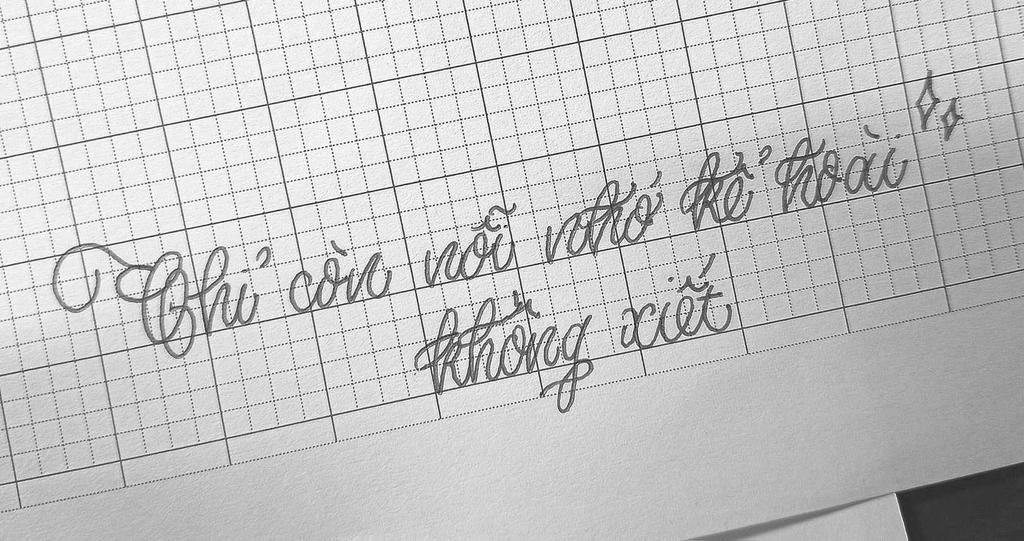 Chỉ còn nỗi nhớ kể hoài
không xiết